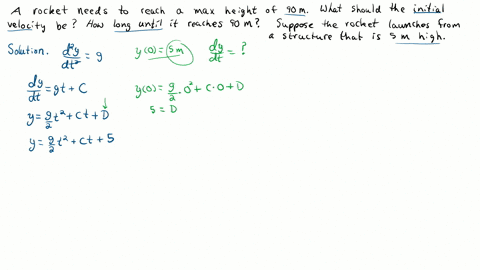 A rocket needs to reach a max height of 90 m. What should the initial
velocity be? How long until it reaches 90 m? Suppose the rocket launches from
a structure that is 5 m high.
Solution. d²y/dt² = g y(0) = 5 m dy/dt = ?
dy/dt = gt + C y(0) = g/2 · 0² + C · 0 + D
y = g/2 t² + Ct + D 5 = D
y = g/2 t² + Ct + 5